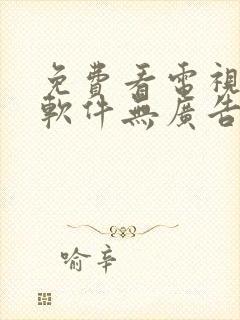 免費看電視
軟件無廣告
喻辛